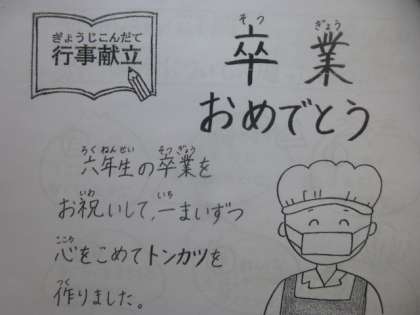 ぎょうじこんだて
行事献立
そつ ぎょう
卒業
おめでとう
ろくねんせい そつぎょう
六年生の卒業を
いわ いち
お祝いして、一まいずつ
こころ
心をこめてトンカツを
つく
作りました。